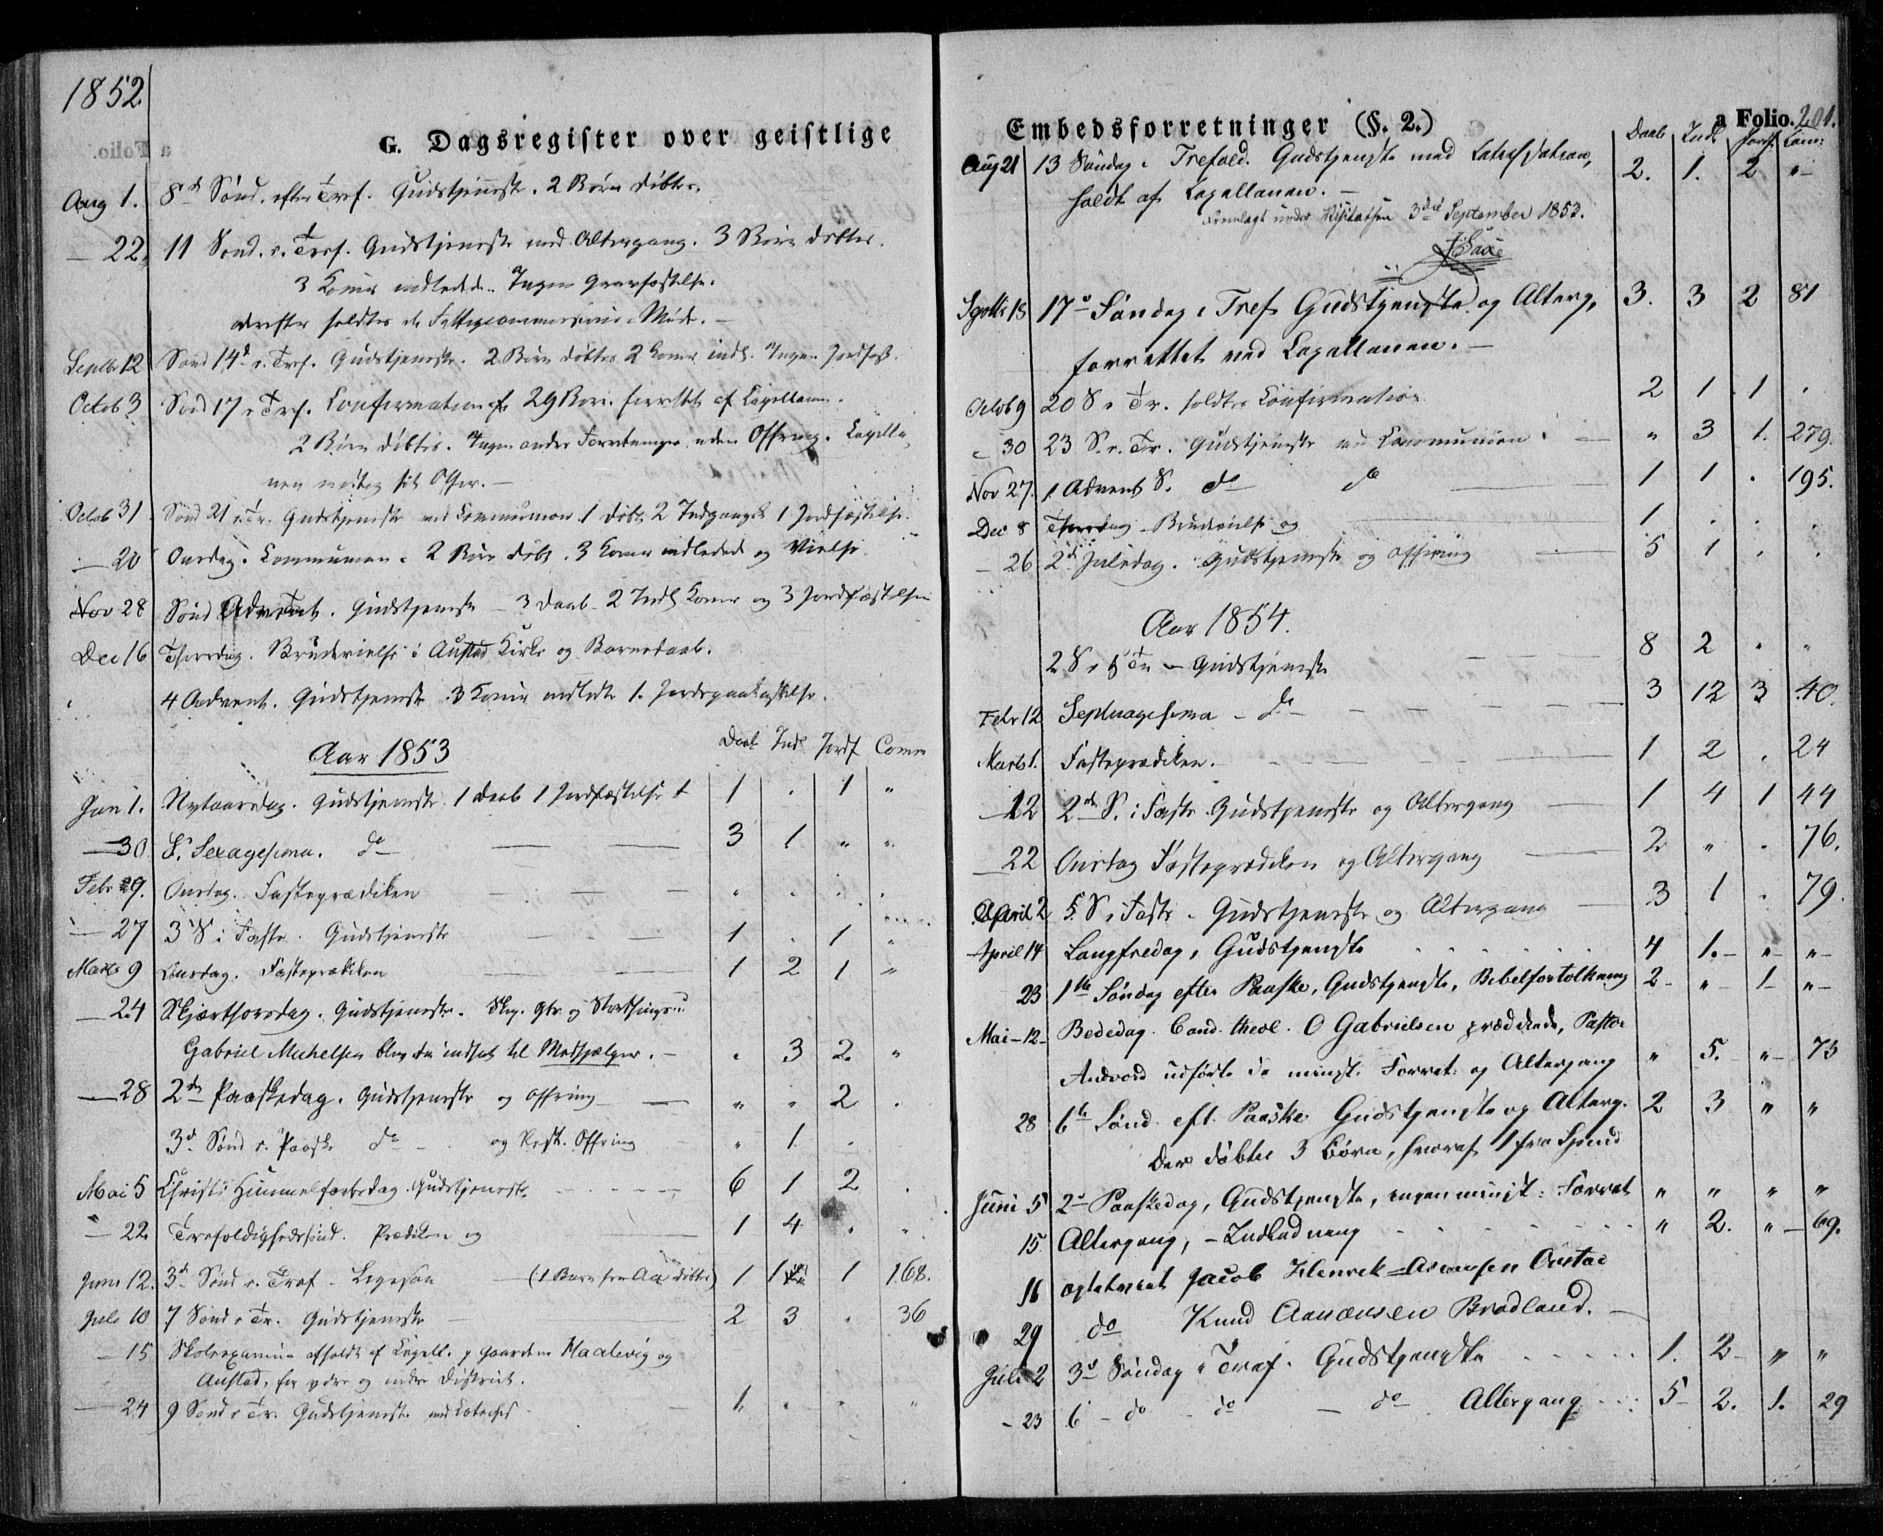 1852
G. Dagsregister over geistlige
Aug 1. 8de Sønd. efter Tref. Gudstjeneste. 2 Børn døbte.
— 22. 11 Sønd. e. Tref. Gudstjeneste med Altergang. 3 Børn døbte.
3 Koner indledede. Ingen Gravfæstelse.
derefter holdtes Fattigcommissions Møde. —
Septbr 12 Sønd 14de e. Tref. Gudstjeneste. 2 Børn døbtes 2 Koner indl. Ingen Jordfæst.
Octob 3 Sønd 17 e. Tref. Confirmation af 29 Børn. forrettet af Capellanen.
2 Børn døbtes. Ingen andre Forretninger uden Offring. Capella-
nen modtog sit Offer. —
Octob 31. Sønd 21 e. Tr. Gudstjeneste med Communion. 1 døbt, 2 Indgangsk 1 Jordfæstelse.
— 20 Onsdag. Communion. 2 Børn døbt. 3 Koner indledede og Vielse.
Nov 28 Sønd Advent. Gudstjeneste — 3 Daab. 2 Indl Koner og 3 Jordfæstelser
Dec 16 Thorsdag. Brudevielse i Austad Kirke og Barnedaab.
4 Advent. Gudstjeneste. 3 Koner indledte 1. Jordspaakastelse.
Aar 1853 Daab Indl Jordf Comm
Jan 1. Nytaarsdag. Gudstjeneste. 1 Daab 1 Jordfæstelse 1 . 1 "
— 30 S. Sexagesima. do — — 3 1 " "
Febr 9. Onsdag. Fasteprædiken — — — . . . .
— 27 3 S i Faste. Gudstjeneste — — — 1 . 1 "
Marts 9 Onsdag. Fasteprædiken — — 1 2 1 "
— 24 Skjærthorsdag. Gudstjeneste.
Gabriel Michelsen blev da indsat til Medhjælper. — . 3 2. "
— 28 2den Paaskedag. Gudstjeneste og Offring — " " 2 .
3d Sønd e. Paaske do — og Rest. Offring " 1 .
Mai 5 Christi Himmelfartsdag. Gudstjeneste. — 6 1 2 .
— 22 Trefoldighedssønd. Prædiken og — 1 4 . "
Juni 12. 3d Sønd e. Tref — (1 Barn fra Aa døbtes) 1 1 1 168.
Juli 10 7 Sønd e Tr. Gudstjeneste — 2 3 . 36
— 15 Skoleexamina afholdt af Capell. p Gaardene Haalevig og
Austad, for ydre og indre Distrikt.
— 24 9 Sønd e Tr. Gudstjeneste med Catechis — 1. . . "
Embedsforretninger (§. 2.) a Folio. 201.
Daab Indl Jordf Com:
Aug 21 13 Søndag e Trefold. Gudstjeneste med Catechisation, 2. 1. 2 "
holdt af Capellanen. —
Fremlagt under Visitatsen 3die September 1853.
Septbr 18 17de Søndag e Tref. Gudstjeneste og Alterg. 3. 3 2 81
forrettet ved Capellanen. —
Octob 9 20 S e Tr. holdtes Confirmation 2 1 1 .
— 30 23 S. e. Tr. Gudstjeneste med Communion. — " 3 1. 279.
Nov 27. 1 Advent S. do do — 1 1 . 195.
Dec 8 Thorsdag Brudevielse og 1 . . .
— 26 2d Juledag. Gudstjeneste og Offring — 5 1 . .
Aar 1854.
2 S e Tr — Gudstjeneste — — 8 2 " "
Febr 12 Septuagesima — do — — — 3 12 3 40.
Marts 1. Fasteprædiken. — — — 1 2 . 24
— 12 2de S. i Faste Gudstjeneste og Altergang — 1 4 1 44
— 22 Onsdag Fasteprædiken og Altergang — 2 " . 76.
April 2 5 S i Faste. Gudstjeneste og Altergang — 3 1 . 79.
April 14 Langfredag, Gudstjeneste . . . . . 4 1. — " — " —
23 1ste Søndag efter Paaske, Gudstjeneste, Bibelfortolkning 2 — " — 1 — " —
Mai — 12 — Bededag. Cand. theol. O Gabrielsen prædikede, Pastor
Andvord udførte de minist. Forret: og Altergang " 5. — " — 73
28 6te Sønd. eft. Paaske Gudstjeneste og Alterg. 2 3 " "
Der døbtes 3 Børn, hvoraf 1 fra
Juni 5 2den Paaskedag, Gudstjeneste, ingen minist: Forret " " " "
15 Altergang, — Indledning — . . . . . " 2. " — 69.
16 Jacob Henrik Asensen Austad
29 do Knud Aanensen Brådland. —
Juli 2 3de Søndag e Tref. Gudstjeneste . . . . . 1. 2 — " "
— 23 6 — do — do — do Altergang . . . 5 — 2. 1. 29